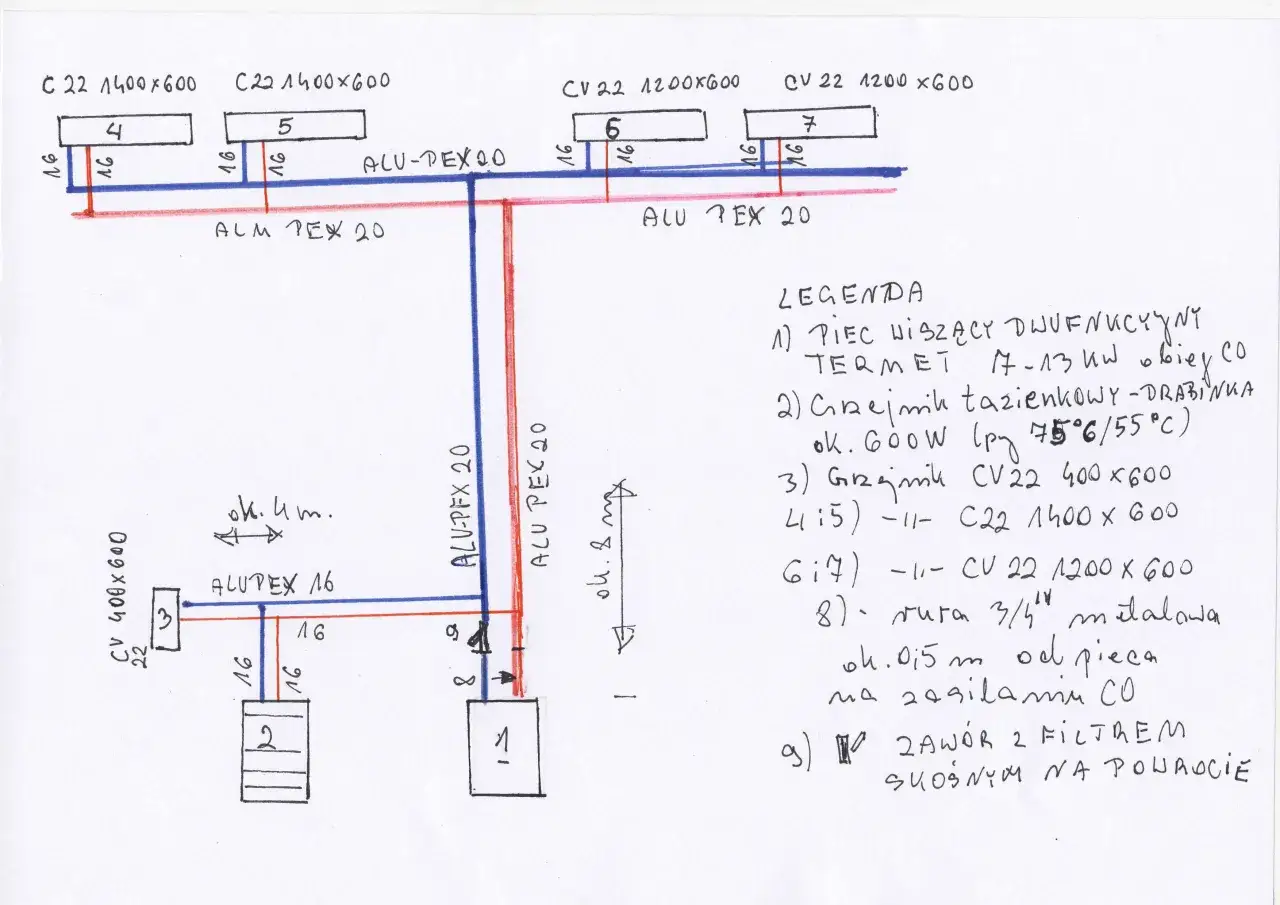 C 22 1400x600
C22 1400x600
CV 22 1200x600
CV 22 1200x600
4
5
6
7
16
16
16
16
16
16
16
16
ALU-PEX 20
ALM PEX 20
ALU PEX 20
LEGENDA
1) PIEC WISZĄCY DWUFNKCYJNY
TERMET 7-13 KW obieg CO
2) Grzejnik łazienkowy-DRABINKA
ok. 600W (py 75°C/55°C)
3) Grzejnik CV22 400x600
4i5) -11- C22 1400x600
6i7) -11- CV 22 1200x600
8) - rura 3/4" metalowa
ok. 0,5 m od pieca
na zasilaniu CO
9) ZAWÓR Z FILTREM
SKOŚNYM NA POWROCIE
ALU-PEX 20
ALU PEX 20
ok. 8 m
ok. 4 m.
ALUPEX 16
CV 400x600
22
3
16
9
16
16
8
2
1